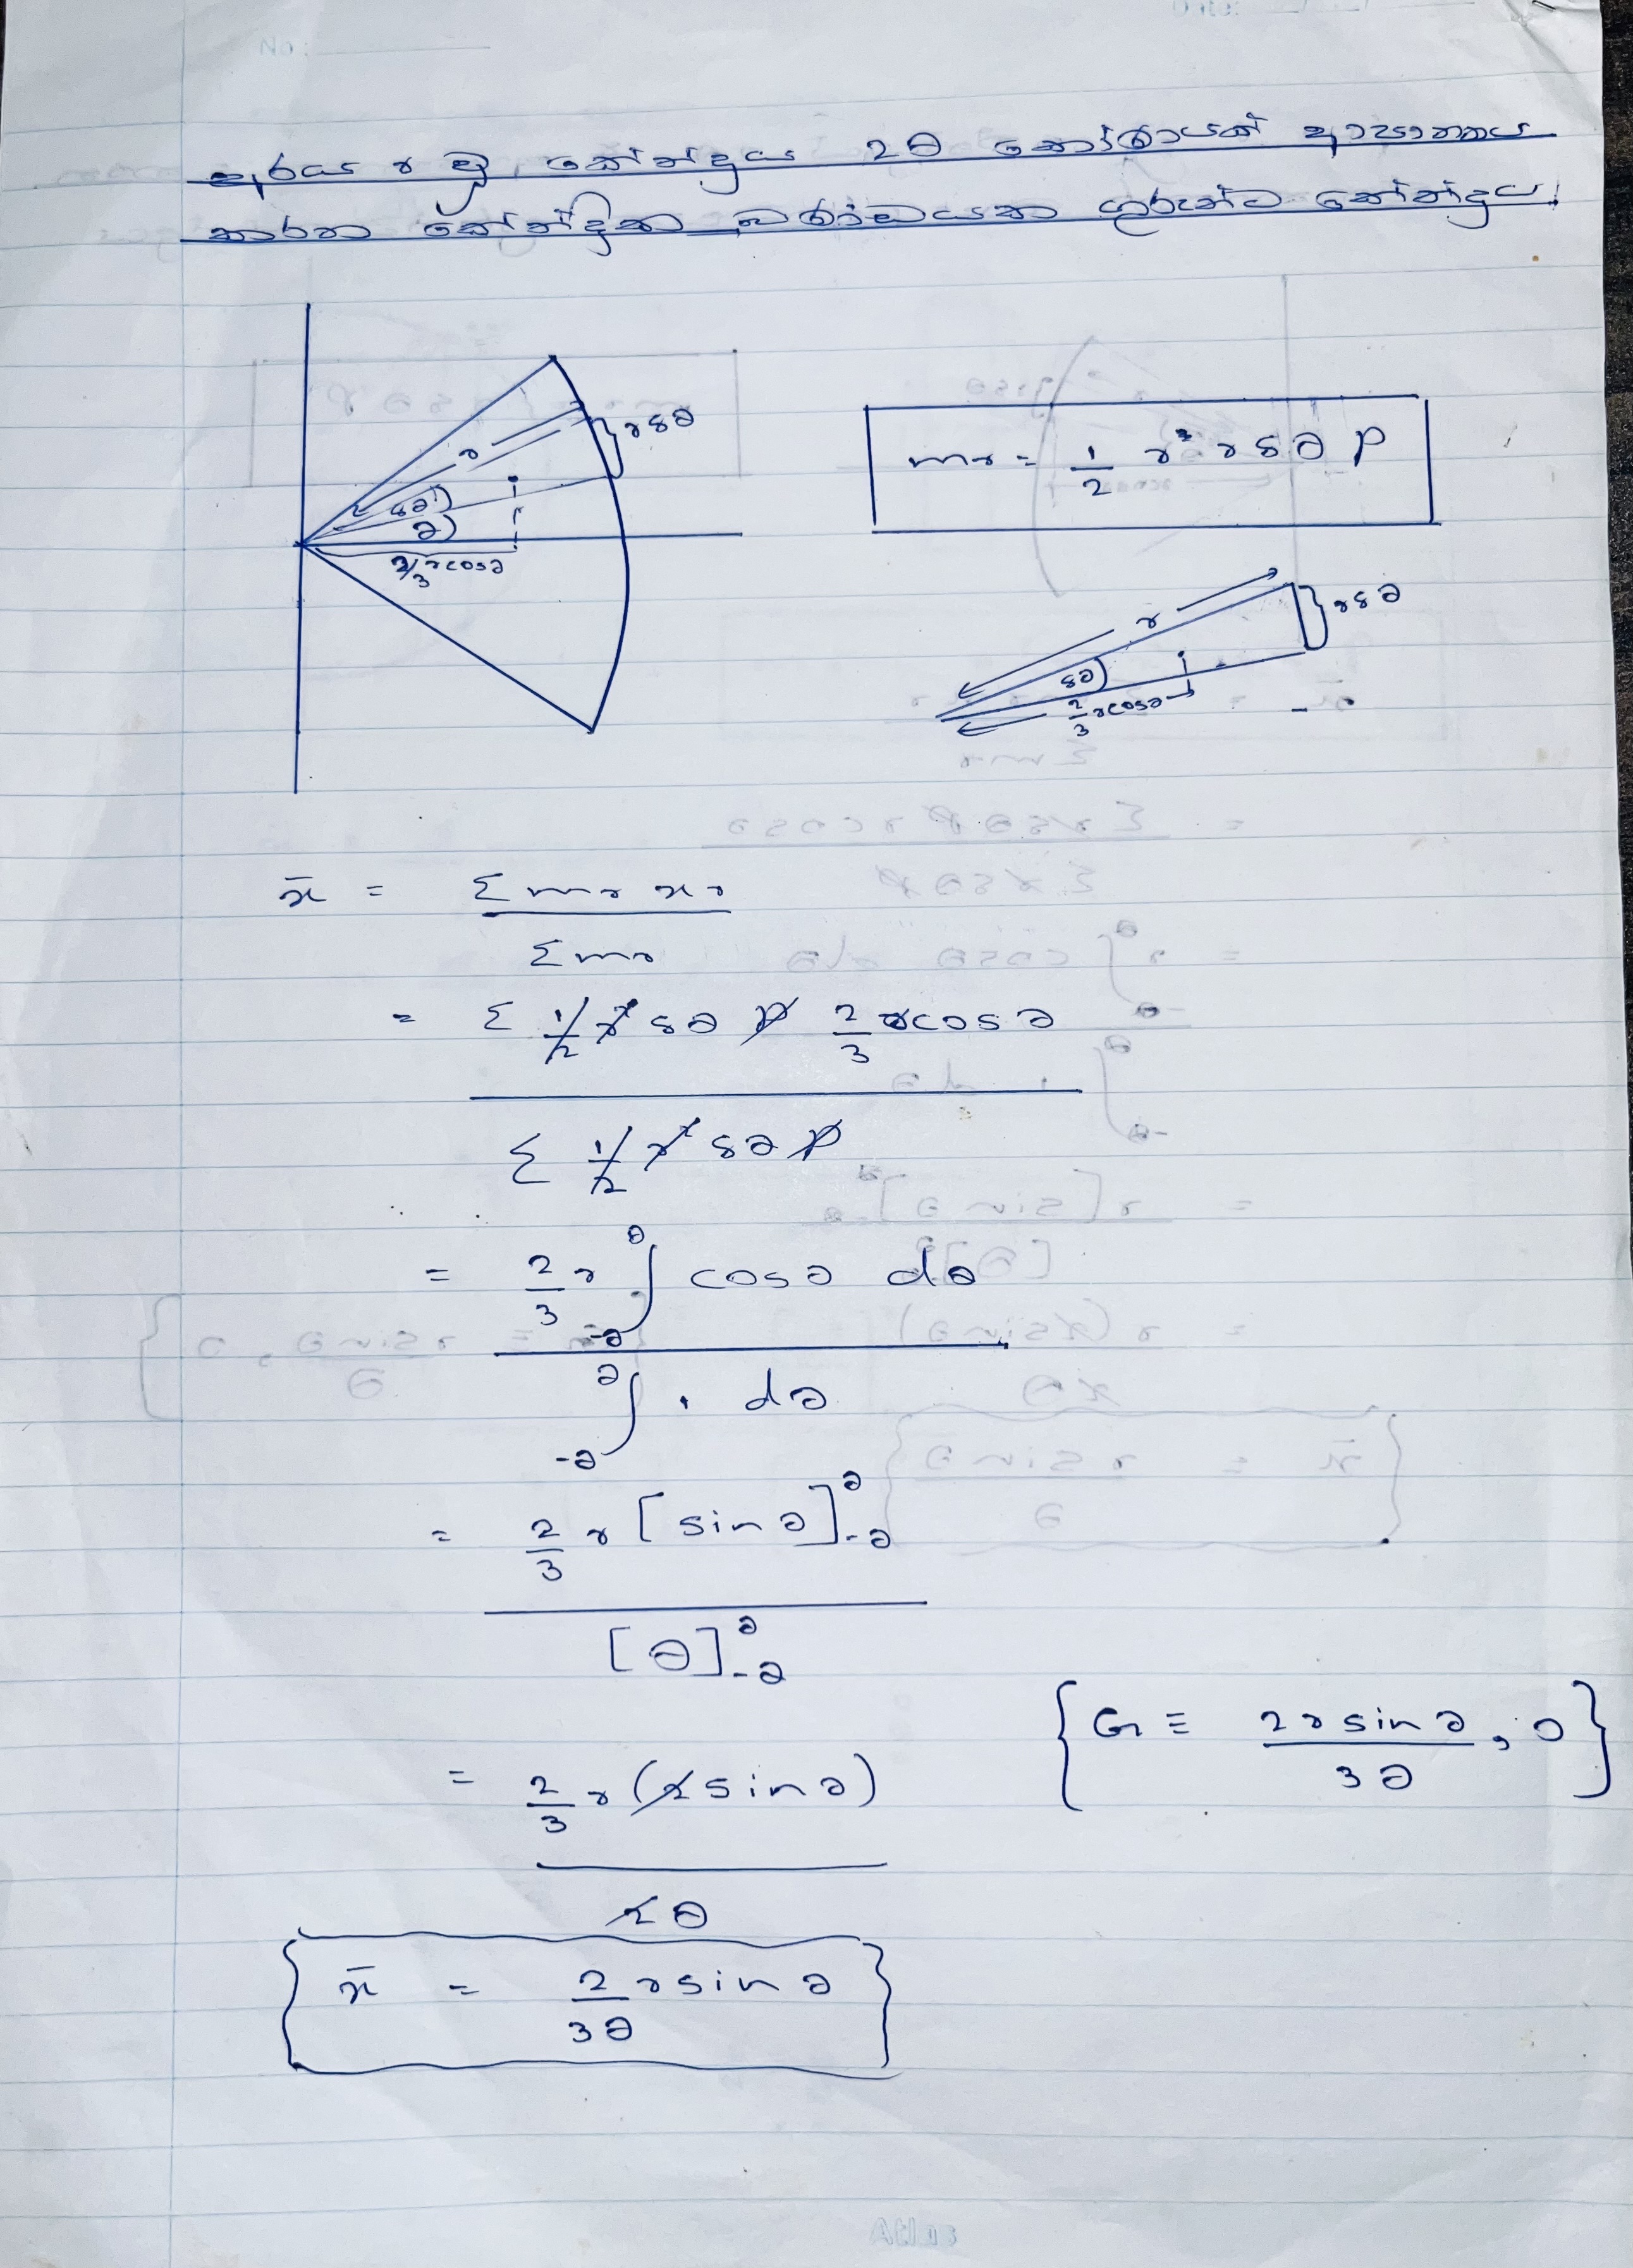 No :
අරය r වූ, කේන්ද්‍රය 2θ කෝණයක් ආපාතනය
කරන කේන්ද්‍රික ඛණ්ඩයක ගුරුත්ව කේන්ද්‍රය.
r
rδθ
δθ
θ
2/3 r cos θ
mr = 1/2 r² rδθ ρ
r
rδθ
δθ
2/3 r cos θ
x̄ = Σ mr xr / Σ mr
= Σ 1/2 r² δθ ρ 2/3 r cos θ / Σ 1/2 r² δθ ρ
= 2/3 r ∫_{-θ}^{θ} cos θ dθ / ∫_{-θ}^{θ} 1 dθ
= 2/3 r [sin θ]_{-θ}^{θ} / [θ]_{-θ}^{θ}
= 2/3 r (2 sin θ) / 2θ
{ G ≡ 2r sin θ / 3θ , 0 }
x̄ = 2/3θ r sin θ
Atlas